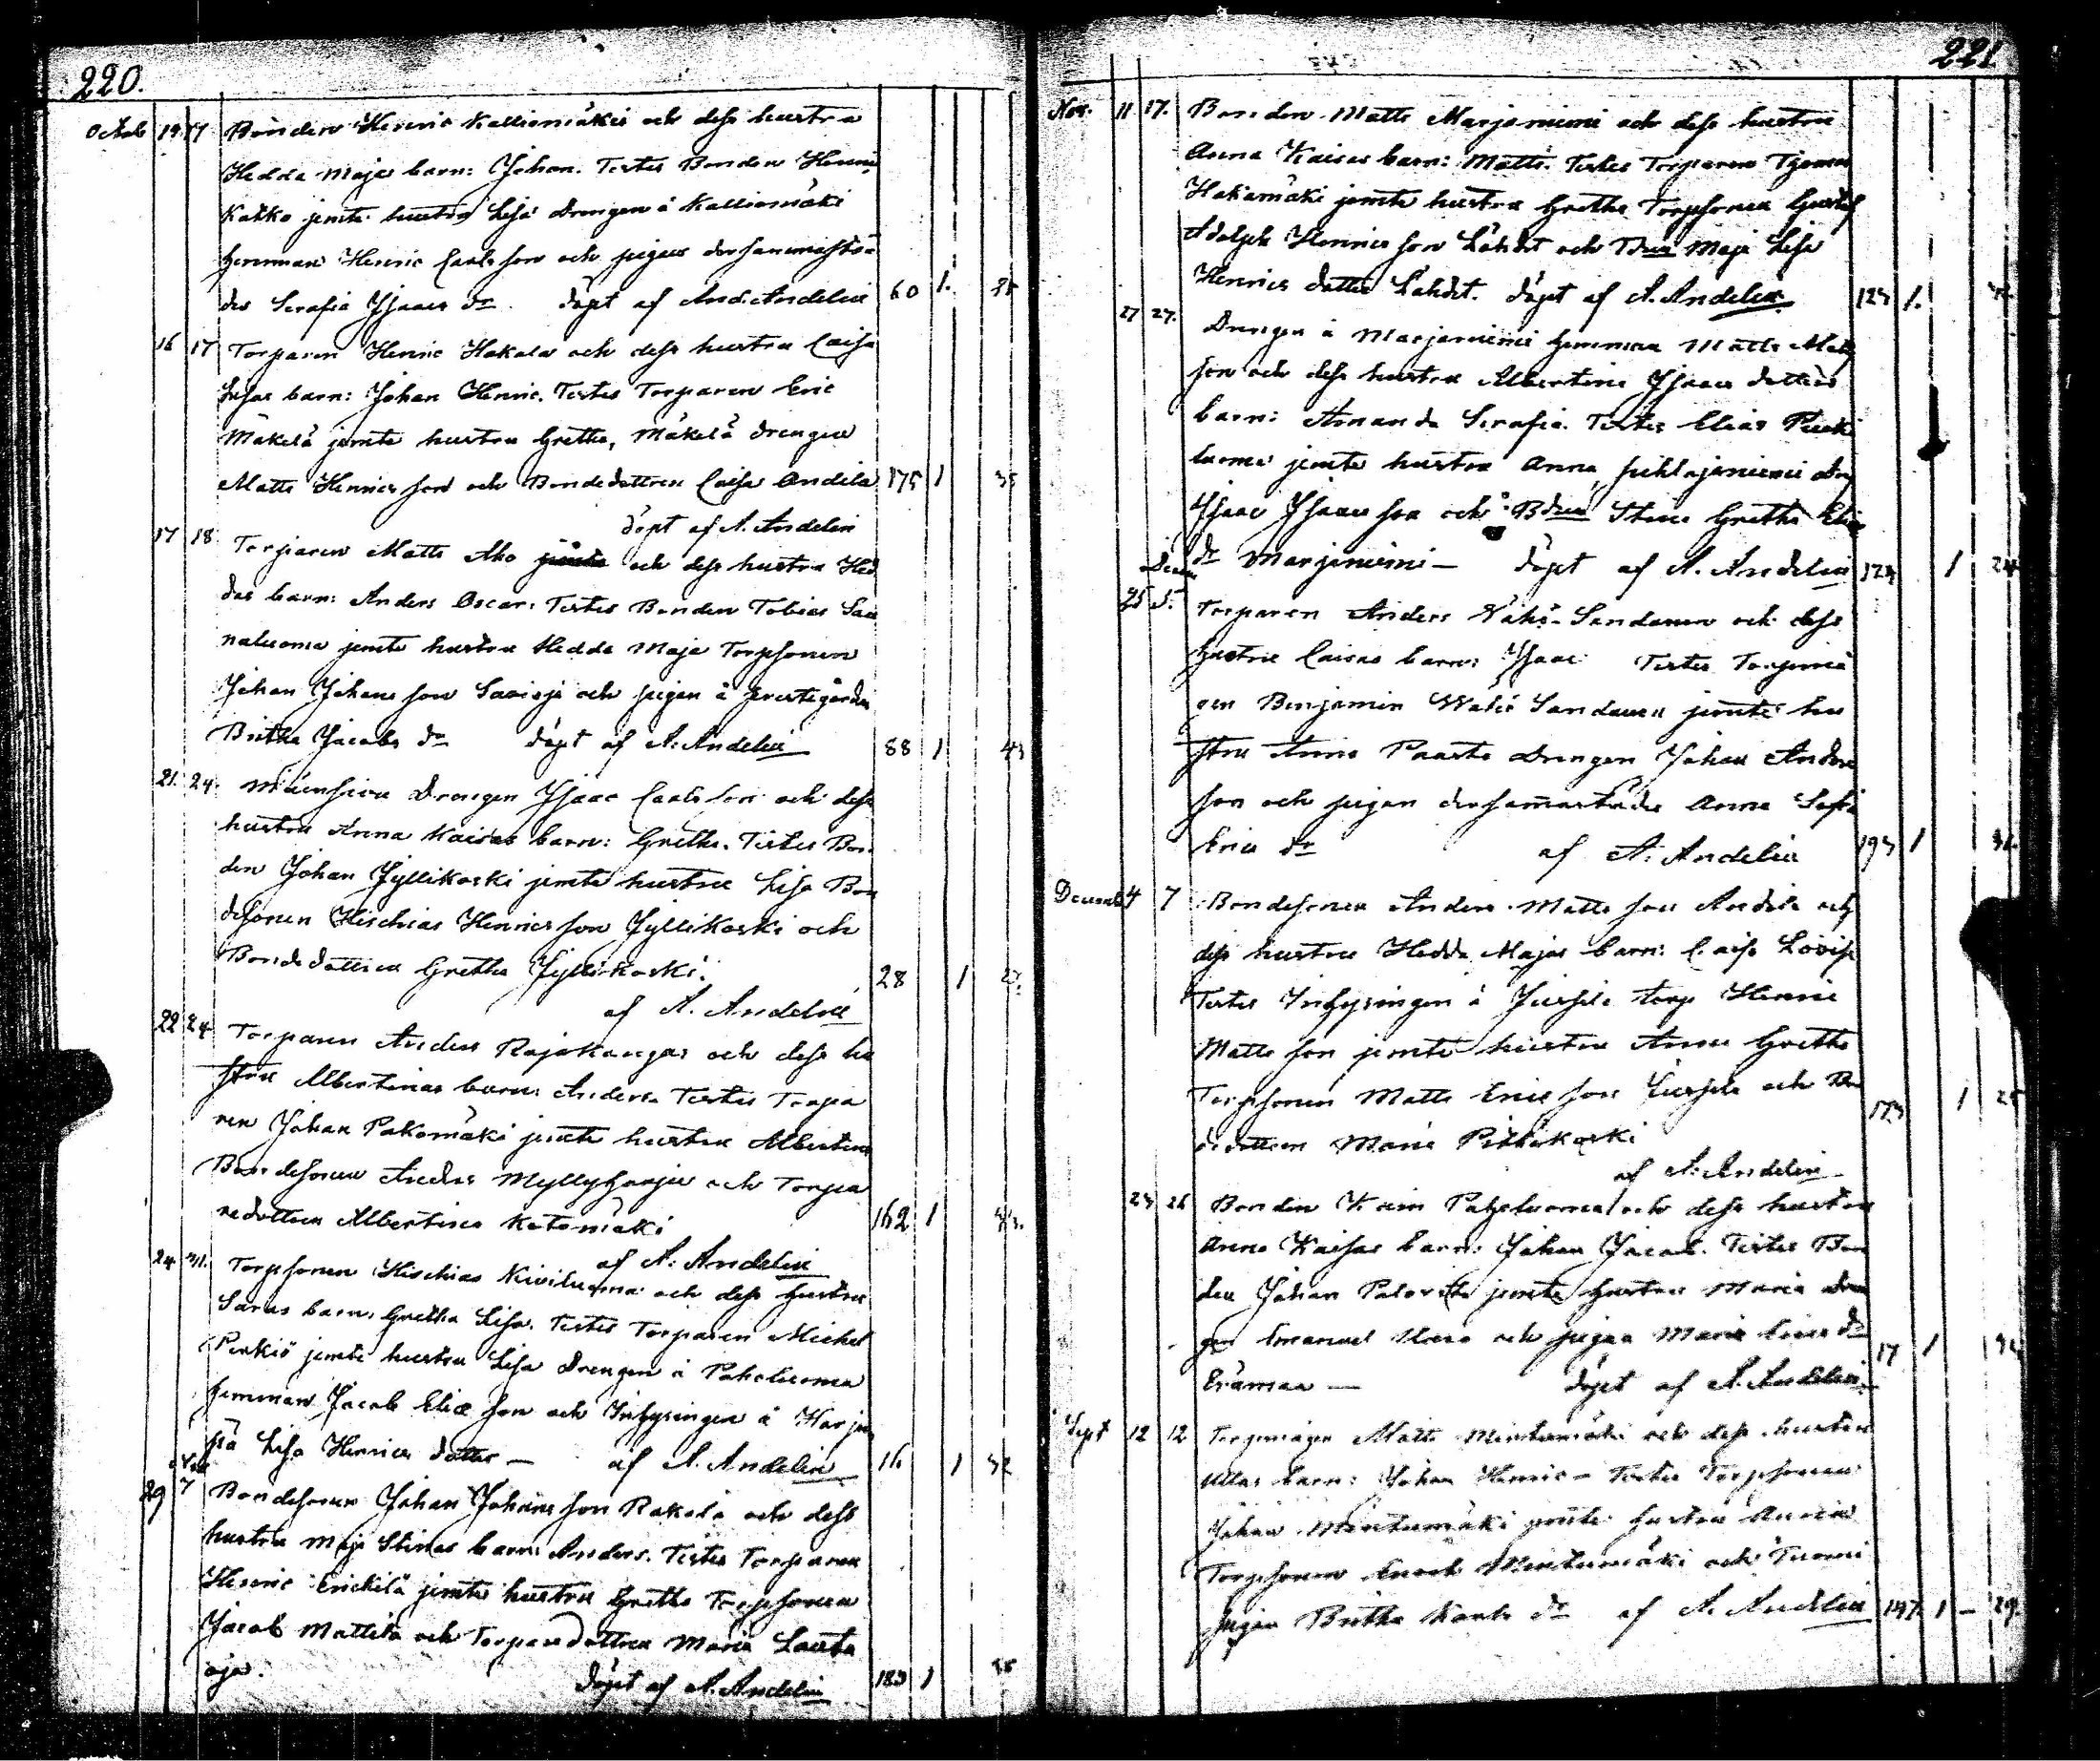 220.
Octob 14 17 Bonden Henric Kalliomäkis och dess hustru
Hedda Majas barn: Johan. Testes Bonden Henric
Katko jemte hustru Lisa Drengen å Kalliomäki
hemman Henric Carlsson och pigan dersammastä-
des Serafia Isaacs dr. döpt af And. Andelin 60 1.
16 17 Torparen Henric Hakala och dess hustru Caisa
Lisas barn: Johan Henric. Testes Torparen Eric
Mäkelä jemte hustru Gretha, Mäkelä drengen
Matts Henricsson och Bondedottren Caisa Andila 175 1 35
döpt af A. Andelin
17 18 Torparen Matts Aho och dess hustru Hed
das barn: Anders Oscar: Testes Bonden Tobias Sau
naluoma jemte hustru Hedda Maja Torpsonen
Johan Johansson och pigan å Prestegården
Britha Jacobs dr döpt af A. Andelin 88 1 43
21. 24. Drengen Isaac Carlsson och dess
hustru Anna Kaisas barn: Gretha. Testes Bon-
den Johan Jyllikoski jemte hustru Lisa Bon
desonen Hischias Henricsson Jyllikoski och
Bondedottren Gretha Jyllikoski. 28 1
af A. Andelin
22 24 Torparen Anders Rajakangas och dess hu
stru Albertinas barn: Anders. Testes Torpa
ren Johan Pakomäki jemte hustru Albertina
Bondesonen Anders Myllyharju och Torpa
redottren Albertina Katomäki 162 1
af A. Andelin
24 31. Torpsonen Hischias Kiviluoma och dess hustru
Saras barn: Gretha Lisa. Testes Torparen Michel
Perkiö jemte hustru Lisa Drengen å Paholuoma
hemman Jacob Eliæ son och Inhysingen å Harju
på Lisa Henrics dotter — af A. Andelin 16 1 32
Nov
29 7 Bondesonen Johan Johansson Rakola och dess
hustru Maja Stinas barn: Anders. Testes Torparen
Henric Erickilä jemte hustru Gretha Torpsonen
Jacob Mattila och Torparedottren Maria Lauta
oja. döpt af A. Andelin 183 1
221
Nov. 11 17. Bonden Matts Marjaniemi och dess hustru
Anna Kaisas barn: Matts. Testes Torparen
Hakamäki jemte hustru Gretha Torpsonen Gustaf
Adolph Henricsson Lähdet och Maja Lisa
Henrics dotter Lähdet. döpt af A. Andelin 123 1.
27 27. Drengen å Marjaniemi hemman Matts Matts
son och dess hustru Albertina Isaacs dotters
barn: Amanda Serafia. Testes Elias
luoma jemte hustru Anna, Pihlajaniemi drg
Isaac Isaacsson och Bdren Stina Gretha Elias
dr Marjaniemi — döpt af A. Andelin 123 1 24
Decem
25 5. Torparen Anders Wähä-Sandanen och dess
hustru Caisas barn: Isaac Testes Torpmå
gen Benjamin Wähä Sandanen jemte hu
stru Anna Paarto Drengen Johan Anders
son och pigan dersammastädes Anna Sofia
Erics dr af A. Andelin 193 1
Decemb 4 7 Bondesonen Anders Mattsson Andila och
dess hustru Hedda Majas barn: Caisa Lovisa
Testes Inhysingen å torp Henric
Mattsson jemte hustru Anna Gretha
Torpsonen Matts Ericsson och Bon
dedottren Maria Pitkäkoski 173 1 25
af A. Andelin
23 26 Bonden Paholuoma och dess hustru
Anna Kaisas barn: Johan Jacob. Testes Bon
den Johan jemte hustru Maria Dren
gen Emanuel och pigan Maria Erics dr 17 1
— döpt af A. Andelin
Sept 12 12 Torpmågen Matts Mintumäki och dess hustru
Ullas barn: Johan Henric — Testes Torpsonen
Johan Mintumäki jemte hustru
Torpsonen Enoch Mintumäki och
pigan Britha Karls dr af A. Andelin 147. 1 — 29.